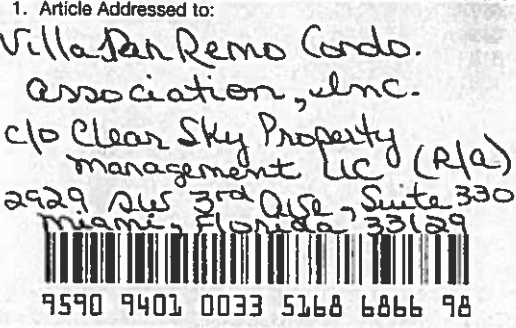 1. Article Addressed to:
Villa San Remo Condo.
association, Inc.
c/o Clear Sky Property
Management LLC (R/a)
2929 SW 3rd Ave, Suite 330
Miami, Florida 33129
9590 9401 0033 5168 6866 98